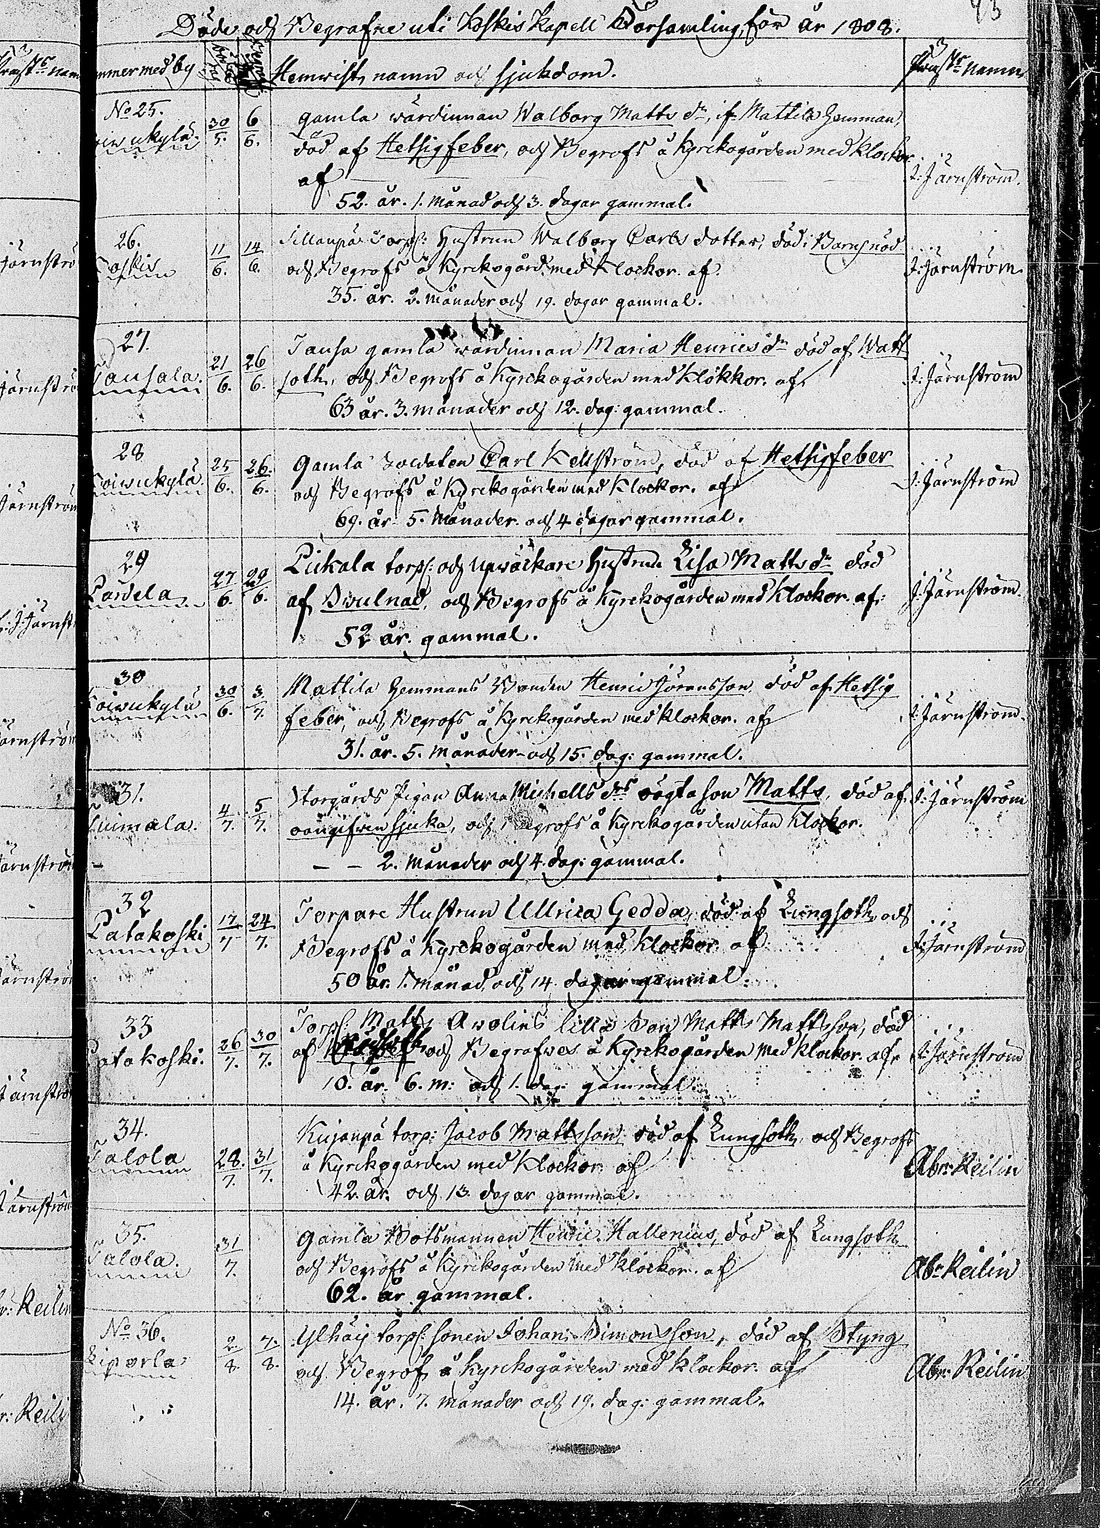 93
Döde och Begrafne uti Koskis Kapell Församling för år 1808.
Prästs namn
nummer med by
Hemwist, namn och sjukdom.
Prästs namn
No 25.
30/5. 6/6.
gamla wärdinnan Walborg Matts dr, if. Mattila Hemman
död af Hetsigfeber, och Begrofs å Kyrckogården med klockor
af
52. år. 1. månad och 3. dagar gammal.
J: Järnström.
26.
Koskis
11/6. 14/6.
Torp: Hustrun Walborg Carls dotter, död i Barnsnöd
och Begrofs å Kyrckogård. med Klockor. af
35. år. 2. månader och 19. dagar gammal.
J: Järnström
27.
Tausala.
21/6. 26/6.
gamla wärdinnan Maria Henrics dr död af Watt
soth, och Begrofs å Kyrckogården med Klockor. af
63 år. 3. månader och 12. dag: gammal.
J: Järnström
28
Koiwukylä
25/6. 26/6.
gamla Soldaten Carl Kellström, död af Hetsigfeber
och Begrofs å Kyrckogården med Klockor. af
69. år. 5. månader. och 4 dagar gammal.
J: Järnström
29
27/6. 29/6.
torp: och Hustrun Lisa Matts dr död
af Swulnad, och Begrofs å Kyrckogården med Klockor. af:
52 år. gammal.
J: Järnström.
30
Koiwukylä
30/6. 3/7.
Mattila Hemmans Bonden Henric Jöransson, död af Hetsig
feber, och Begrofs å Kyrckogården med klockor. af
31. år. 5. månader och 15. dag: gammal.
J: Järnström.
31.
4/7. 5/7.
Storgårds Pigan Anna Michells drs oägta son Matts, död af
oangifwen sjuka, och Begrofs å Kyrckogården utan Klockor.
— — 2. månader och 4. dag: gammal.
J: Järnström
32
Patakoski
17/7 24/7.
Torpare Hustrun Ullrica Gedda, död af Lungsoth, och
Begrofs å Kyrckogården med Klockor af
50 år. 1. månad. och 14. dagar gammal.
J: Järnström
33
Patakoski.
26/7. 30/7.
Torp: Matts Awelins lilla Son Matts Mattsson, död
af och Begrafwes å Kyrckogården med klockor. af
10. år. 6. m: och 1. dag: gammal.
J: Järnström
34.
Talola
28/7. 31/7.
Kujanpä torp: Jacob Mattsson, död af Lungsoth, och Begrofs
å Kyrckogården med Klockor af
42 år. och 13. dagar gammal.
Abr: Reilin
35.
Talola.
31/7.
Gamla Båtsmannen Henric Hallenius, död af Lungsoth
och Begrofs å Kyrckogården med klockor. af
62. år gammal.
Abr: Reilin
No 36.
Liporla
2/8. 7/8.
Ylhäis torp: sonen Johan Simonsson, död af Styng
och Begrof å Kyrckogården med klockor. af
14. år. 7. månader och 19. dag: gammal.
Abr: Reilin